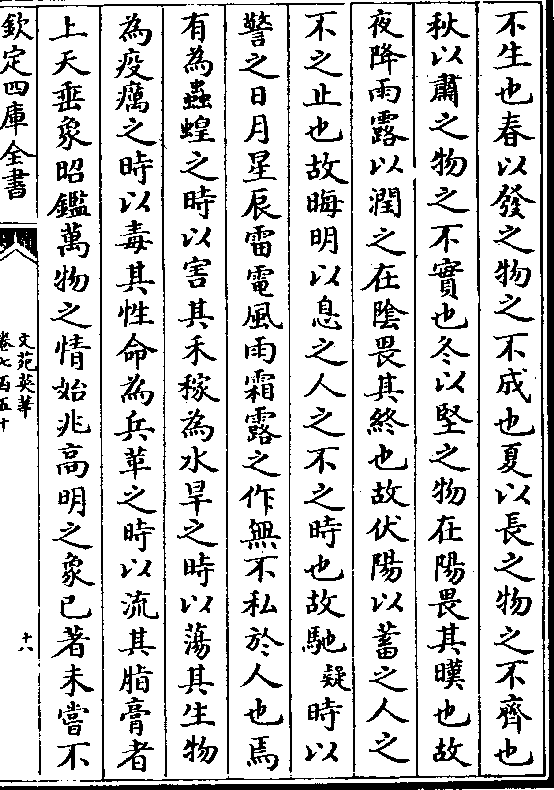 不生也春以發之物之不成也夏以長之物之不齊也
秋以肅之物之不實也冬以堅之物在陽畏其暵也故
夜降雨露以潤之在陰畏其終也故伏陽以蓄之人之
不之止也故晦明以息之人之不之時也故馳疑時以
警之日月星辰雷電風雨霜露之作無不私於人也焉
有為蟲蝗之時以害其禾稼為水旱之時以蕩其生物
為疫癘之時以毒其性命為兵革之時以流其脂膏者
上天垂象昭鑑萬物之情始兆高明之象已著未嘗不
欽定四庫全書
文苑英華
卷七百五十
十八